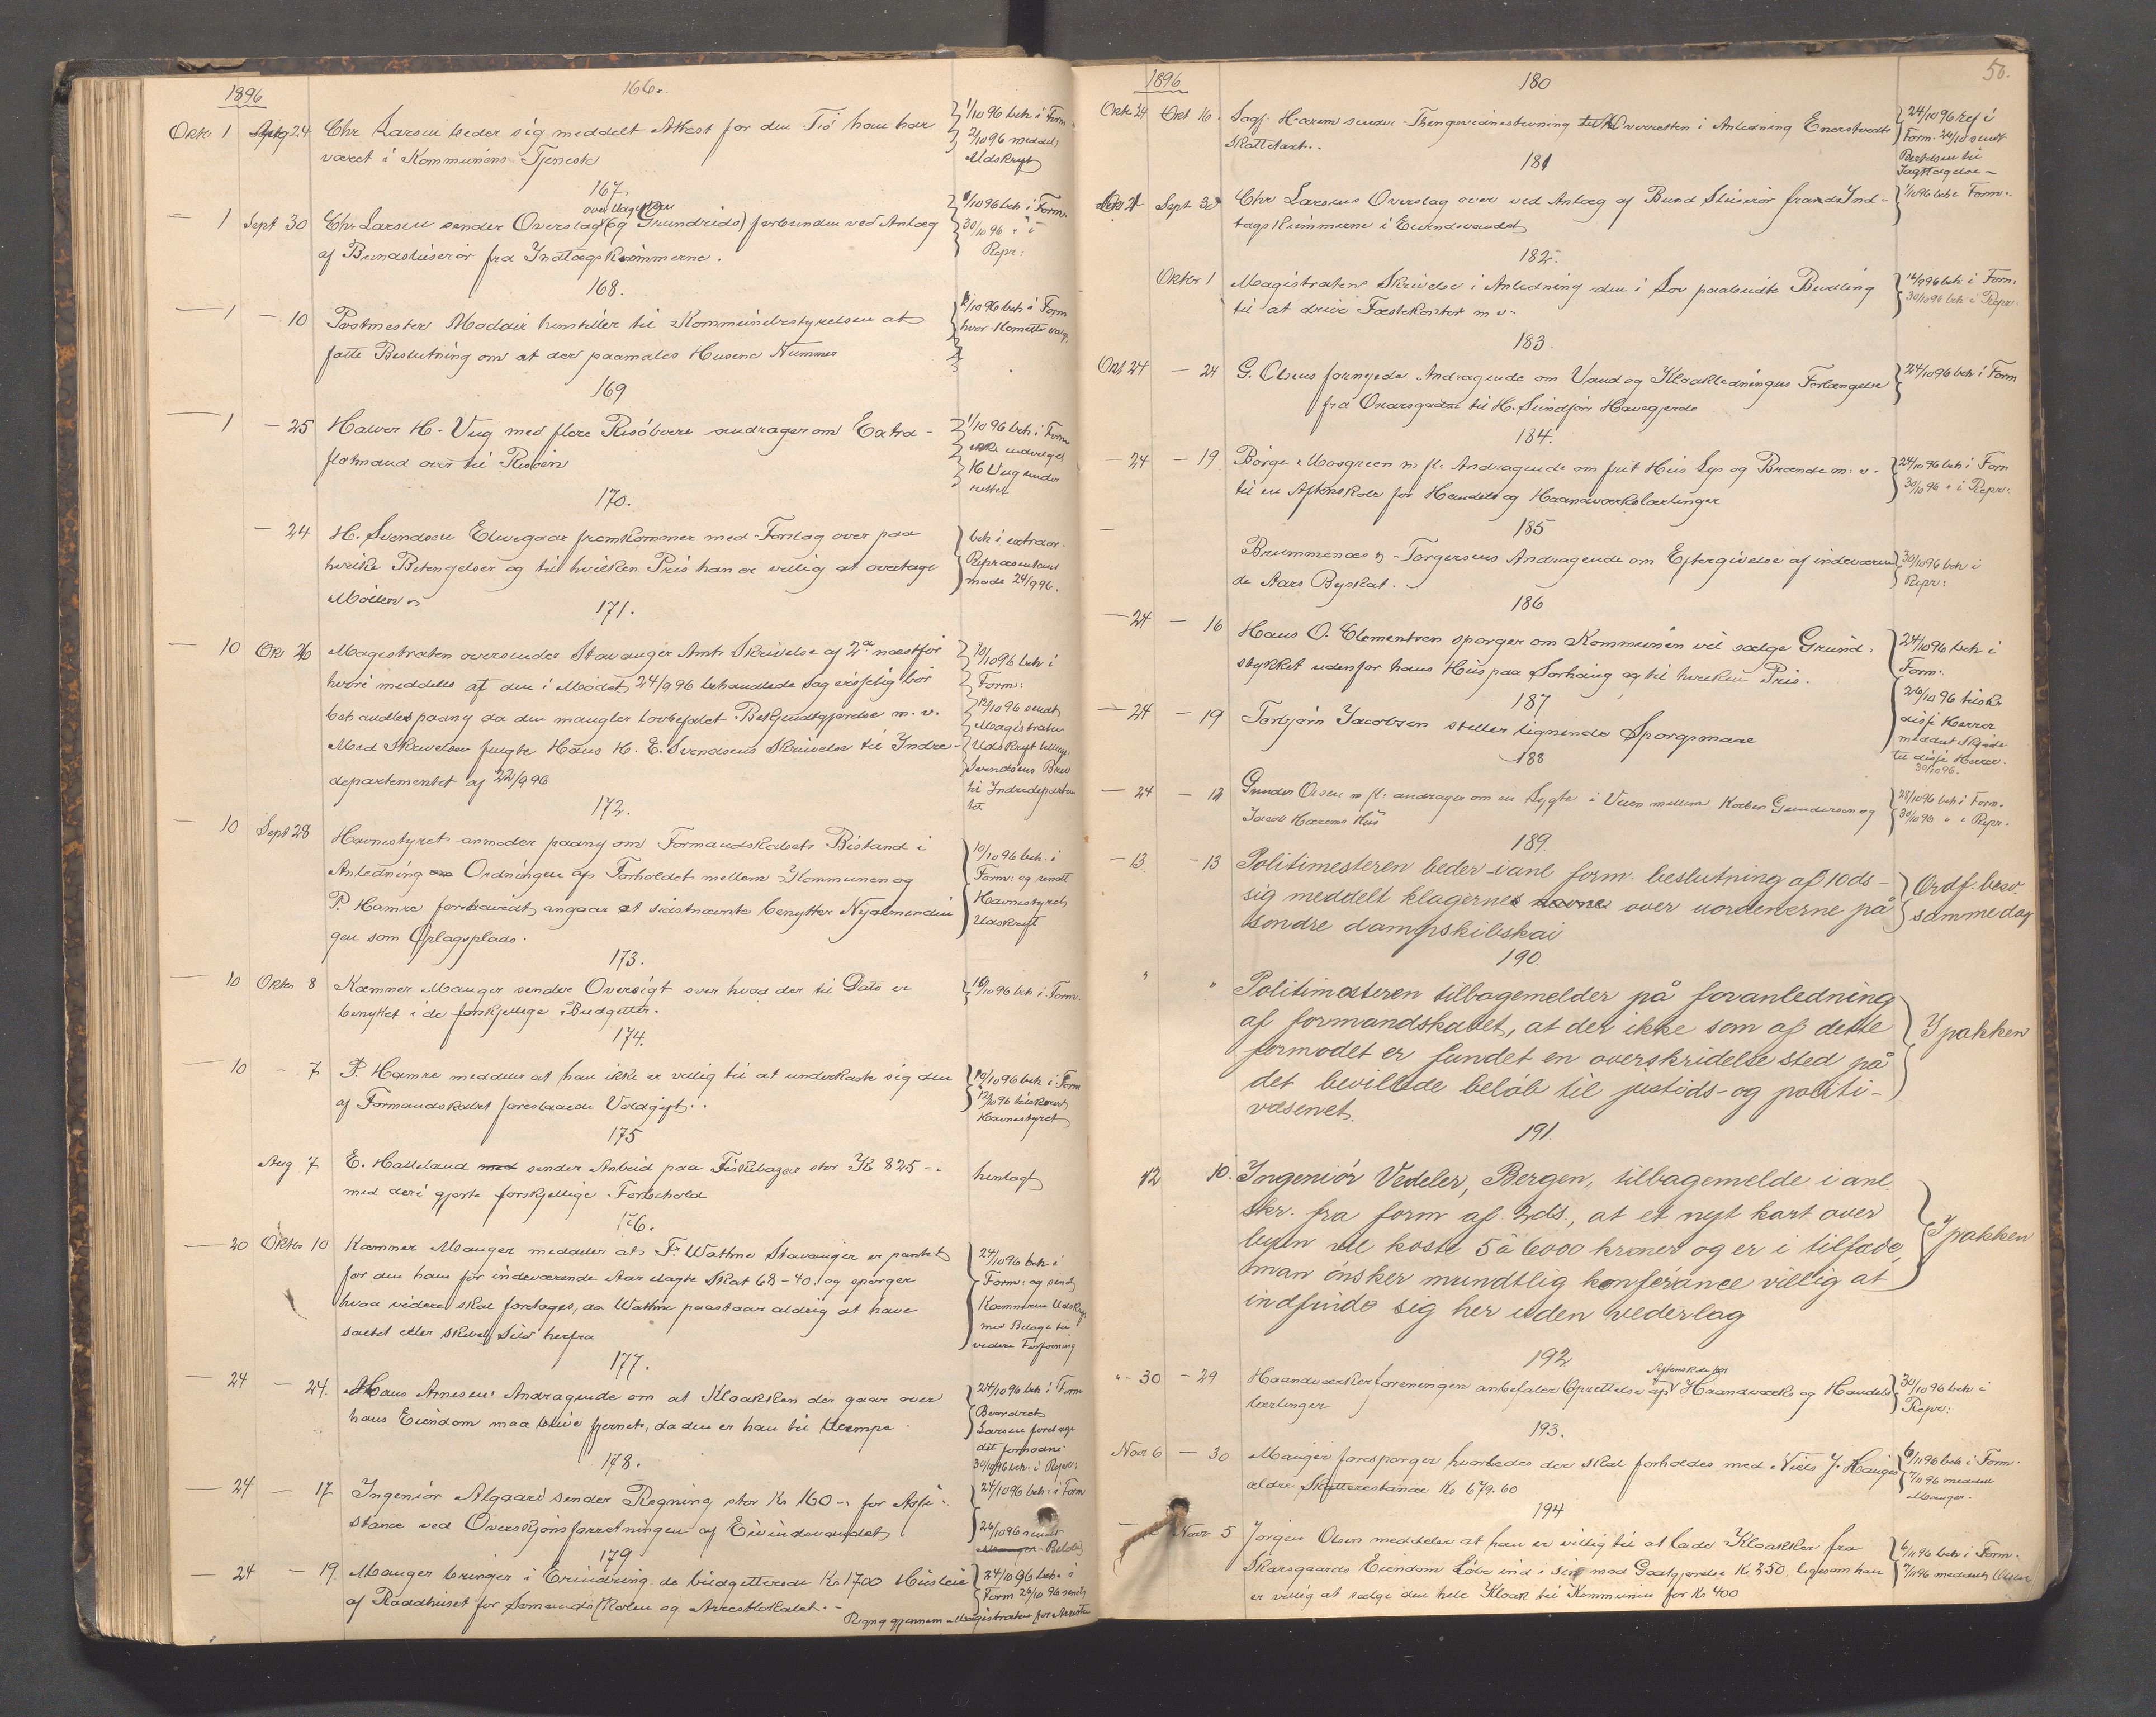 1896
166.
Oktr 1 Septr 24 Chr Larsen beder sig meddelt Attest for den Tid han har
været i Kommunens Tjeneste
1/10 96 beh i Form
2/10 96 meddelt
Udskrift
167
over Udgifterne
— 1 Sept 30 Chr Larsen sender Overslag (og Grundrids) forbunden ved Anlæg
af Bundsluserør fra Indtagskummerne.
1/10 96 beh i Form.
30/10 96 " i
Repr:
168.
— 1 — 10 Postmester Modair henstiller til Kommunebestyrelsen at
fatte Beslutning om at der paamales Husene Nummer
1/10 96 beh i Form
hvor Komitte valg.
169
— 1 — 25 Halvor H. Vug med flere Risøboere andrager om Extra-
flotmand over til Risøen
1/10 96 beh i Form
ikke indvilget
H Vug under
rettet
170.
— 24 H. Svendsen Elvegaar fremkommer med Forslag over paa
hvilke Betengelser og til hvilken Pris han er villig at overtage
Møllen
beh i extraor.
Repræsentant
møde 24/9 96.
171.
— 10 Okt 26 Magistraten oversender Stavanger Amts Skrivelse af 2den næstfør
hvori meddeles at den i Mødet 24/9 96 behandlede Sag visselig bør
behandles paany da den mangler lovbefalet Betkjendtgjørelse m. v.
Med Skrivelsen fulgte Hans H. E. Svendsens Skrivelse til Indre-
departementet af 22/9 96
10/10 96 beh i
Form:
12/10 96 sendt
Magistraten
Udskrift tillige
Svendsens Brev
til Indredeparte
tet
172.
— 10 Sept 28 Havnestyret anmoder paany om Formandskabets Bistand i
Anledning Ordningen af Forholdet mellem Kommunen og
P. Hamre forsaavidt angaar at sidstnævnte benytter Nyalmendin
gen som Oplagsplads.
10/10 96 beh. i
Form: og sendt
Havnestyret
Udskrift
173.
— 10 Oktr 8 Kæmner Mauger sender Oversigt over hvad der til Dato er
benyttet i de forskjellige Budgetter.
10/10 96 beh i Form.
174.
— 10 — 7 P. Hamre meddeler at han ikke er villig til at underkaste sig den
af Formandskabet foreslaaede Voldgift.
10/10 96 beh i Form
12/10 96 tilskrevet
Havnestyret
175
Aug 7 E. Halleland med sender Anbud paa Fiskebager stor Kr 825-.
med deri gjorte forskjellige Forbehold
henlagt
176.
— 20 Oktr 10 Kæmner Mauger meddeler at F. Wathne Stavanger er pantet
for den ham for indeværende Aar ilagte Skat 68-40. og spørger
hvad videre skal foretages, da Wathne paastaar aldrig at have
saltet eller skibet Sild herfra
24/10 96 beh i
Form: og sendt
Kæmneren Udskrift
med Bilage til
videre Forføining
177.
— 24 — 24. Hans Arnesens Andragende om at Kloakken der gaar over
hans Eiendom maa blive fjernet, da den er ham til Ulempe.
24/10 96 beh i Form
Beordret
Larsen foretage
det fornødne
30/10 96 beh: i Repr:
178.
— 24 — 17 Ingeniør Algaard sender Regning stor Kr 160-. for Assi-
stance ved Overskjønsforretningen af Eivindsvandet
24/10 96 beh: i Form
26/10 96 sendt
Mauger Bilde
179
— 24 — 19 Mauger bringer i Erindring de budgetterede Kr 1700 Husleie
af Raadhuset for Sømandsskolen og Arrestlokalet.-
24/10 96 beh. i
Form 26/10 96 sendt
Regng gjennem Magistraten for Arresten
56.
1896
180
Oktr 24 Okt 16. Sagf. Harem sender Thingsvidnestevning til Overretten i Anledning Enerstvedts
Skattetaxt..
24/10 96 ref i
Form. 24/10 sendt
Bertelsen til
Iagttagelse-
181
Okt 1 Sept 30 Chr Larsens Overslag over ved Anlæg af Bund Sluserør fra de Ind-
tagskummerne i Eivindsvandet
1/10 96 beh i Form.
182.
Oktbr 1 Magistratens Skrivelse i Anledning den i Lov paabudte Bevilling
til at drive Fæstekontor m. v.
16/9 96 beh i Form.
30/10 96 beh i Repr.
183.
Okt 24 — 24 G. Olsens fornyede Andragende om Vand og Kloakledningens Forlængelse
fra Onarsgaden til H. Sundførs Havegjerde
24/10 96 beh i Form
184.
— 24 — 19 Børge Mosgreen m fl. Andragende om frit Hus Lys og Brænde m. v.
til en Aftenskole for Handels og Haandværkslærlinger
24/10 96 beh i Form
30/10 96 " i Repr.
185
Brummenæs & Torgersens Andragende om Eftergivelse af indeværen
de Aars Byskat.
30/10 96 beh i
Repr:
186
— 24 — 16 Hans O. Clementsen spørger om Kommunen vil sælge Grund-
stykket udenfor hans Hus paa Sørhaug og til hvilken Pris.
24/10 96 beh i
Form:
187
— 24 — 19 Torbjørn Jacobsen stiller lignende Spørgsmaal
26/10 96 tilskr
disse Herrer
meddelt Skjøde
til disse Herrer.
30/10 96.
188
— 24 — 12 Gunder Olsen m fl. andrager om en Lygte i Veien mellem Korben Gundersen og
Jacob Harems Hus
28/10 96 beh i Form.
30/10 96 " i Repr.
189.
— 13 — 13 Politimesteren beder i anl form. beslutning af 10ds-
sig meddelt klagernes navne over uordenerne på
søndre dampskibskai
Ordf. besv.
samme dag
190.
" " Politimesteren tilbagemelder på foranledning
af formandskabet, at der ikke som af dette
formodet er fundet en overskridelse sted på
det bevilgede beløb til justids- og politi-
væsenet.
I pakken
191.
12 10. Ingeniør Vedeler, Bergen, tilbagemelde i anl.
skr. fra form af 2ds., at et nyt kart over
byen vil koste 5 à 6000 kroner og er i tilfælde,
man ønsker mundtlig konferance villig at
indfinde sig her uden vederlag
I pakken
192
Aftenskole for
" - 30 — 29 Haandværkerforeningen anbefaler Oprettelse af Haandværks og Handels
lærlinger
30/10 96 beh i
Repr:
193.
Novr 6 — 30 Mauger forespørger hvorledes der skal forholdes med Niels J. Hauges
ældre Skatterestance Kr 679.60
6/11 96 beh i Form.
7/11 96 meddelt
Mauger.
194
— Novr 5 Jørgen Olsen meddeler at han er villig til at lade Kloakken fra
Skarsgaards Eiendom Løbe ind i sin mod Godtgjørelse Kr 250. ligesom han
er villig at sælge den hele Kloak til Kommunen for Kr 400
6/11 96 beh i Form.
7/11 96 meddelt Olsen